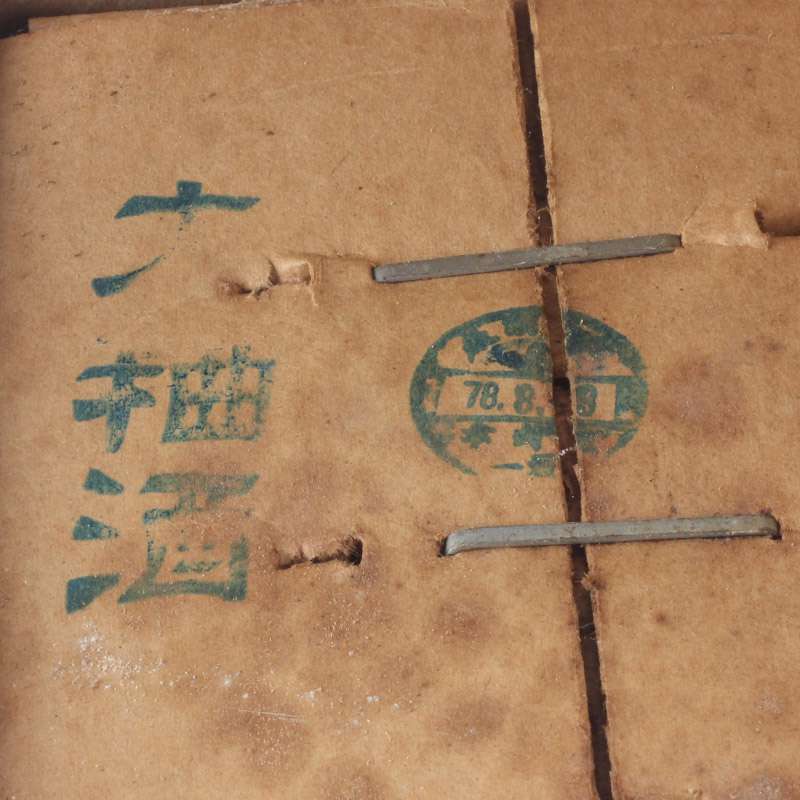 大粬酒
78. 8. 8